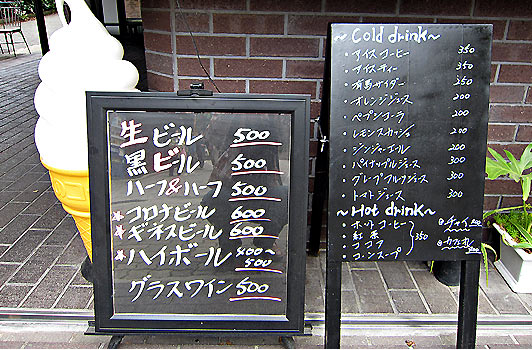 生ビール 500
黒ビール 500
ハーフ&ハーフ 500
★コロナビール 600
★ギネスビール 600
★ハイボール 400~500
グラスワイン 500
~Cold drink~
・アイスコーヒー 350
・アイスティー 350
・有馬サイダー 350
・オレンジジュース 200
・ペプシコーラ 200
・レモンスカッシュ 200
・ジンジャーエール 200
・パイナップルジュース 300
・グレープフルーツジュース 300
・トマトジュース 300
~Hot drink~
・ホットコーヒー
・紅茶
・ココア
・コーンスープ
350
チャイ 500
カフェオレ